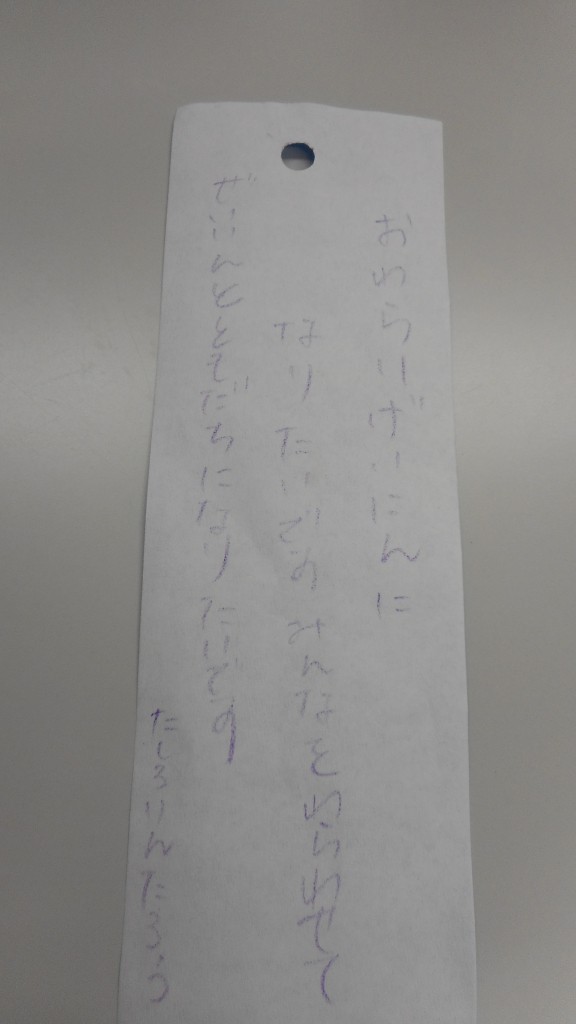 おわらいげいにんに
なりたいです みんなをわらわせて
ぜいんとともだちになりたいです